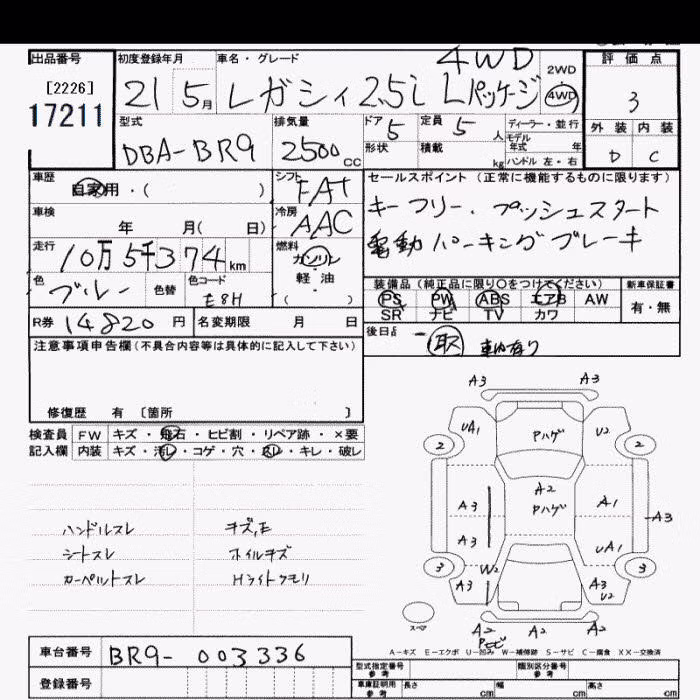 出品番号 初度登録年月 車名・グレード 4WD 2WD 評価点
[2226] 21 5月 レガシィ 2.5i Lパッケージ 4WD 3
17211 型式 排気量 ドア 5 定員 5 人 ディーラー・並行 外装 内装
モデル
DBA-BR9 2500cc 形状 積載 kg 年式 年 D C
ハンドル 左・右
車歴 シフト セールスポイント (正常に機能するものに限ります)
自家用・( ) FAT キーフリー・プッシュスタート
車検 年 月( 日) 冷房 AAC 電動パーキングブレーキ
走行 10万5千374km 燃料 ガソリン
軽・油
( )
装備品 (純正品に限り○をつけてください) 新車保証書
色 ブルー 色替 色コード E8H PS PW ABS エアB AW 有・無
SR ナビ TV カワ
R券 14820円 名変期限 月 日 後日品 取 車内有り
注意事項申告欄 (不具合内容等は具体的に記入して下さい)
修復歴 有 〔箇所 〕
検査員 FW キズ・飛石・ヒビ割・リペア跡・×要
記入欄 内装 キズ・汚レ・コゲ・穴・スレ・キレ・破レ
ハンドルスレ キズ,E
シートスレ ホイルキズ
カーペットスレ Hライトクモリ
A3 A3
UA1 Pハゲ U2
2 2
A2
A3 Pハゲ A1
A3
A3 UA1
3 W2 3
A3 A3
U2
スペア A2 A2 A2
A-キズ E-エクボ U-凹み W-補修跡 S-サビ C-腐食 XX-交換済
車台番号 BR9-003336
型式指定番号 類別区分番号
参考 参考
登録番号 車庫証明用 長さ cm 幅 cm 高さ cm
参考